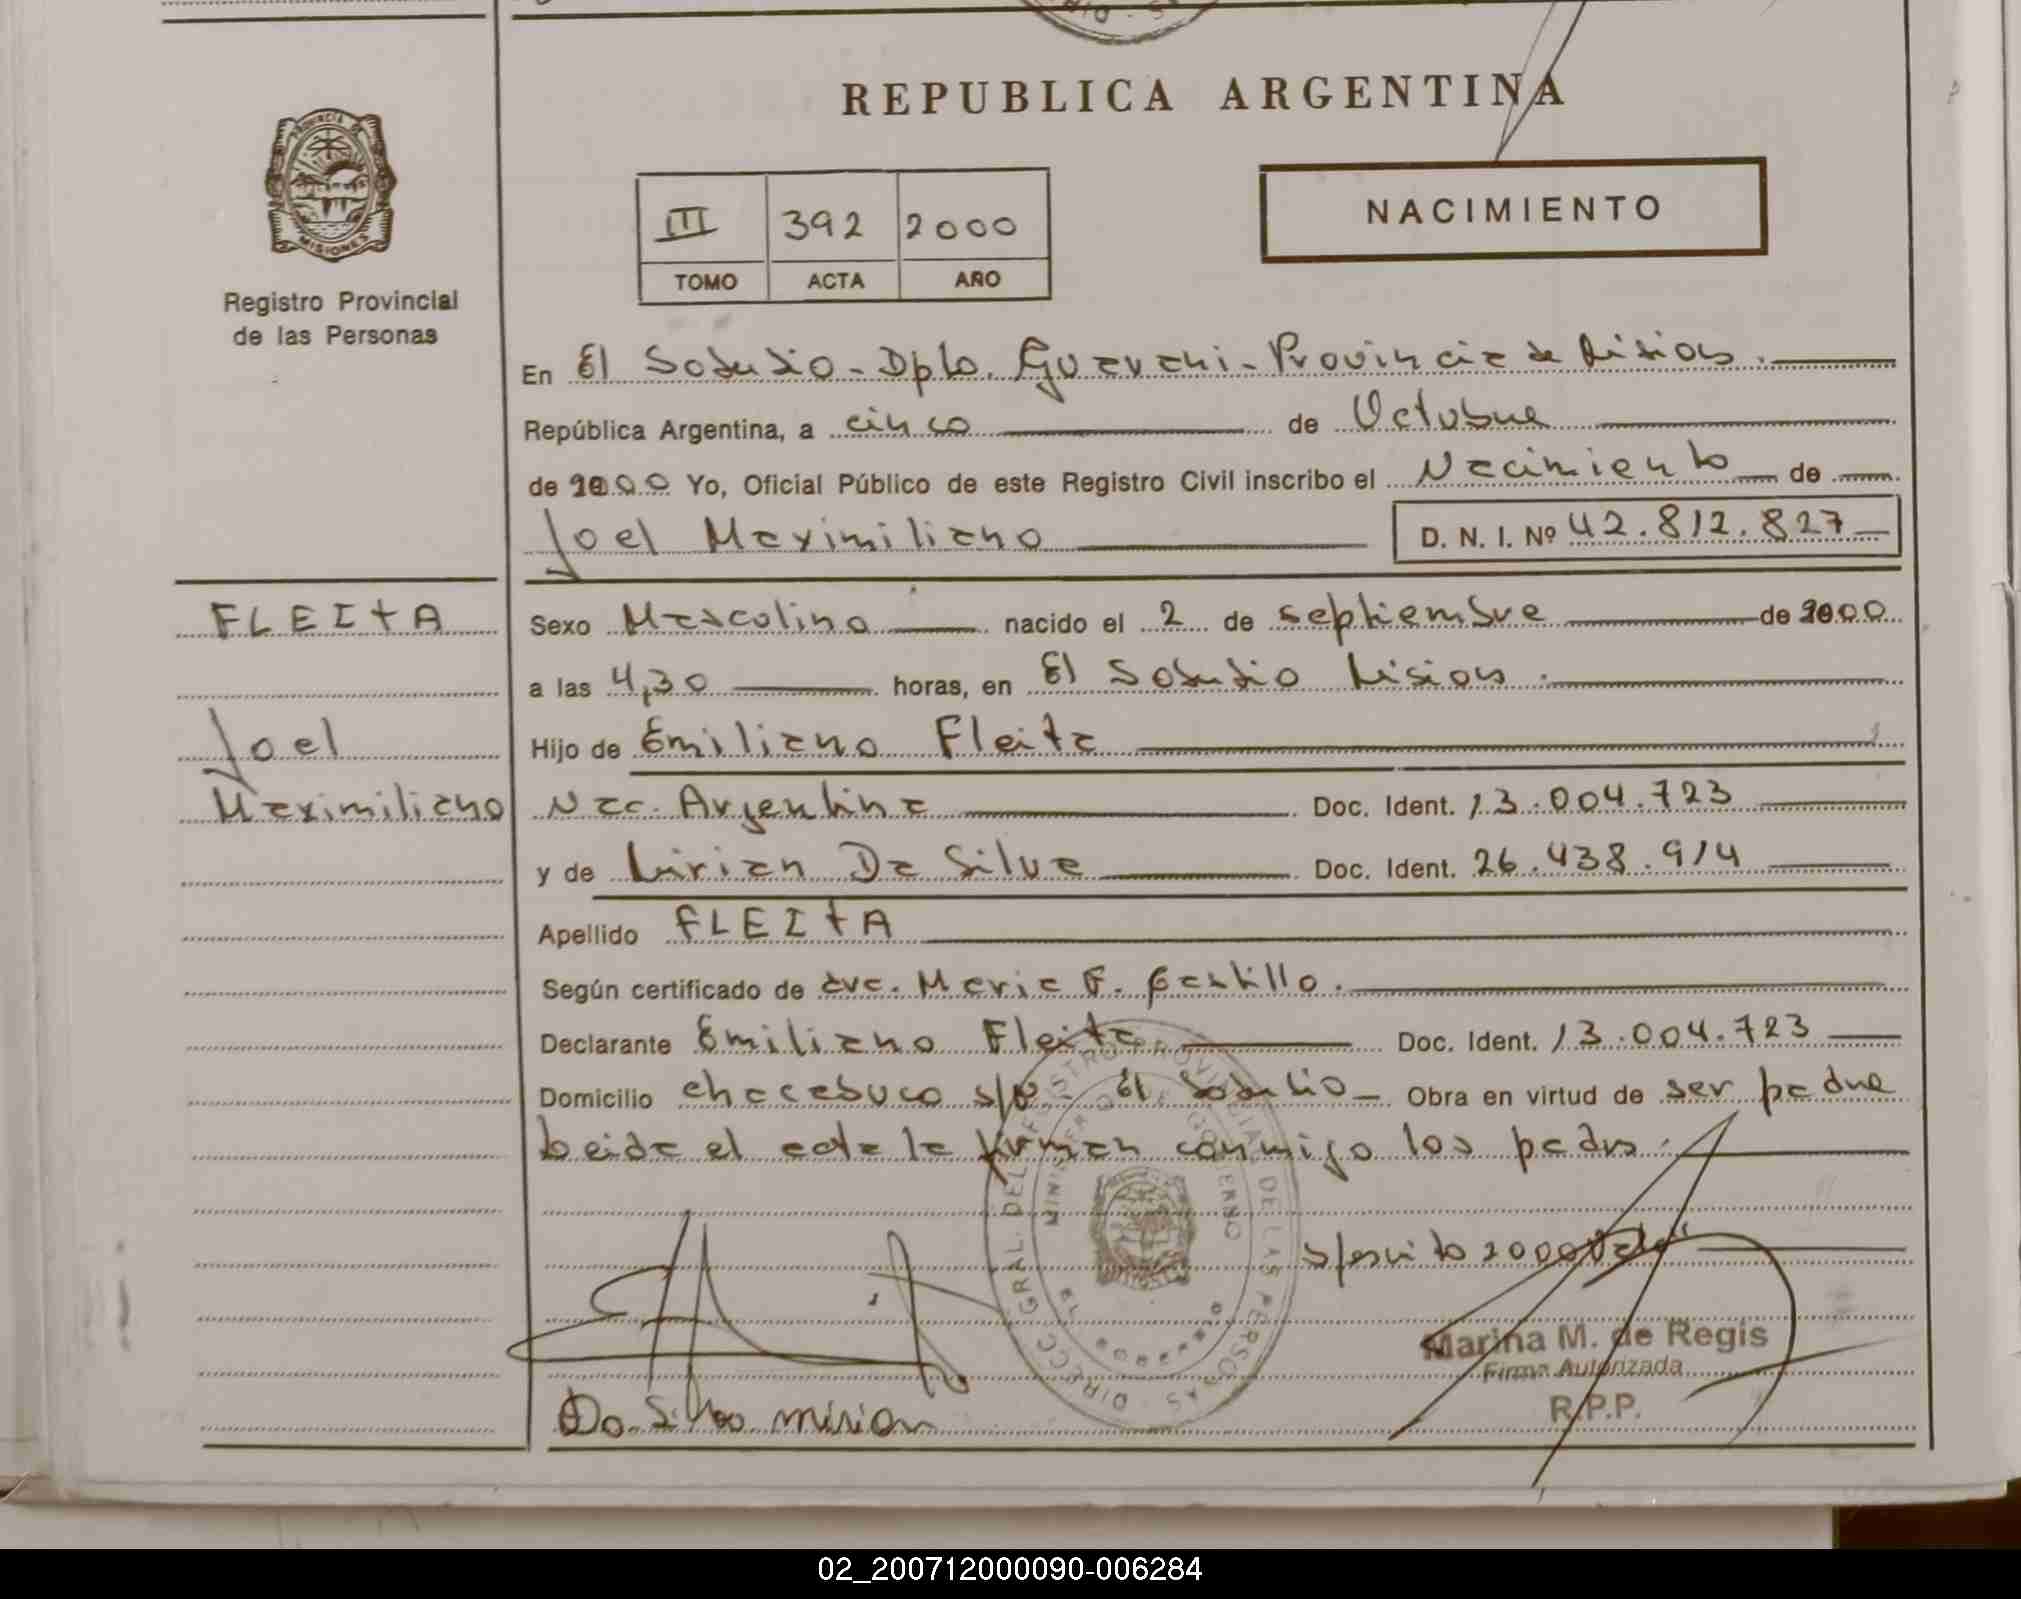 REPUBLICA ARGENTINA
PROVINCIA DE
MISIONES
Registro Provincial
de las Personas
III 392 2000
TOMO ACTA AÑO
NACIMIENTO
En El Soberbio - Dpto. Guarani - Provincia de Misiones.
República Argentina, a cinco de Octubre
de 2000 Yo, Oficial Público de este Registro Civil inscribo el Nacimiento de
Joel Maximiliano D. N. I. Nº 42.812.827
FLEITA
Joel
Maximiliano
Sexo Masculino nacido el 2 de septiembre de 2000
a las 4,30 horas, en El Soberbio Misiones.
Hijo de Emiliano Fleita
Nac. Argentina Doc. Ident. 13.004.723
y de Mirian Da Silva Doc. Ident. 26.438.914
Apellido FLEITA
Según certificado de Maria F. Castillo.
Declarante Emiliano Fleita Doc. Ident. 13.004.723
Domicilio Chacabuco s/n El Soberbio Obra en virtud de ser padre
Leida el acta la firman conmigo los padres.
DIRECC. GRAL. DEL REGISTRO PROVINCIAL DE LAS PERSONAS
MINISTERIO DE GOBIERNO
2000
Marina M. de Regis
Firma Autorizada
R.P.P.
Da Silva mirian
02_200712000090-006284